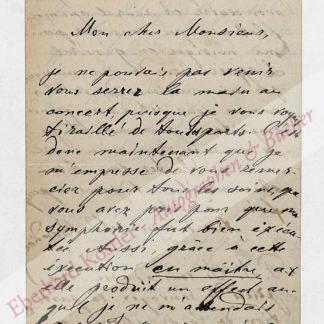 Mon cher Monsieur,
je ne pouvais pas venir
vous serrer la main au
concert puisque je vous voy
tiraillé de tous parts. C'est
donc maintenant que je
m'empresse de vous remer-
cier pour tous les soins, que
vous avez pris pour que ma
symphonie fut bien exécu-
tée. Aussi, grâce à cette
exécution en maître, a-t
elle produit un effet au-
quel je ne m'attendais
Eberhard Köstler - Autographen & Bücher